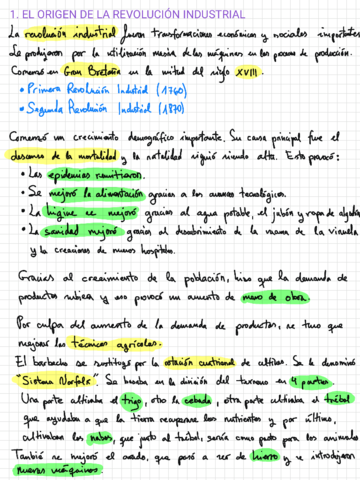 1. EL ORIGEN DE LA REVOLUCIÓN INDUSTRIAL
La revolución industrial fueron transformaciones económicas y sociales importantes
Se produjeron por la utilización masiva de las máquinas en los procesos de producción.
Comenzó en Gran Bretaña en la mitad del siglo XVIII.
• Primera Revolución Industrial (1760)
• Segunda Revolución Industrial (1870)
Comenzó un crecimiento demográfico importante. Su causa principal fue el
descenso de la mortalidad y la natalidad siguió siendo alta. Esto provocó:
• Las epidemias remitieron.
• Se mejoró la alimentación gracias a los avances tecnológicos.
• La higine se mejoró gracias al agua potable, el jabón y ropa de algodón
• La sanidad mejoró gracias al descubrimiento de la vacuna de la viruela
y la creaciones de nuevos hospitales.
Gracias al crecimiento de la población, hizo que la demanda de
productos subiera y eso provocó un aumento de mano de obra.
Por culpa del aumento de la demanda de productos, se tuvo que
mejorar las técnicas agrícolas.
El barbecho se sustituyó por la rotación cuatrienal de cultivos. Se le denominó
"Sistema Norfolk". Se basaba en la división del terreno en 4 partes.
Una parte cultivaba el trigo, otra la cebada, otra parte cultivaba el trébol
que ayudaba a que la tierra recuperase los nutrientes y por último,
cultivaban los nabos, que junto al trébol, servía como pasto para los animales
También se mejoró el arado, que pasó a ser de hierro y se introdujeron
nuevas máquinas.